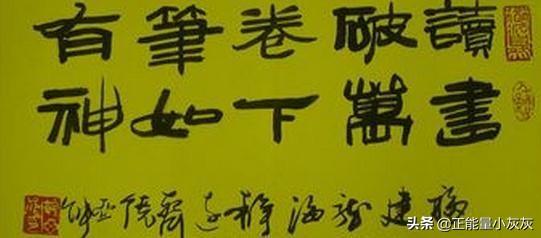 讀書
破萬
卷下
筆如
有神
福建龙海
头条 @正能量小灰灰